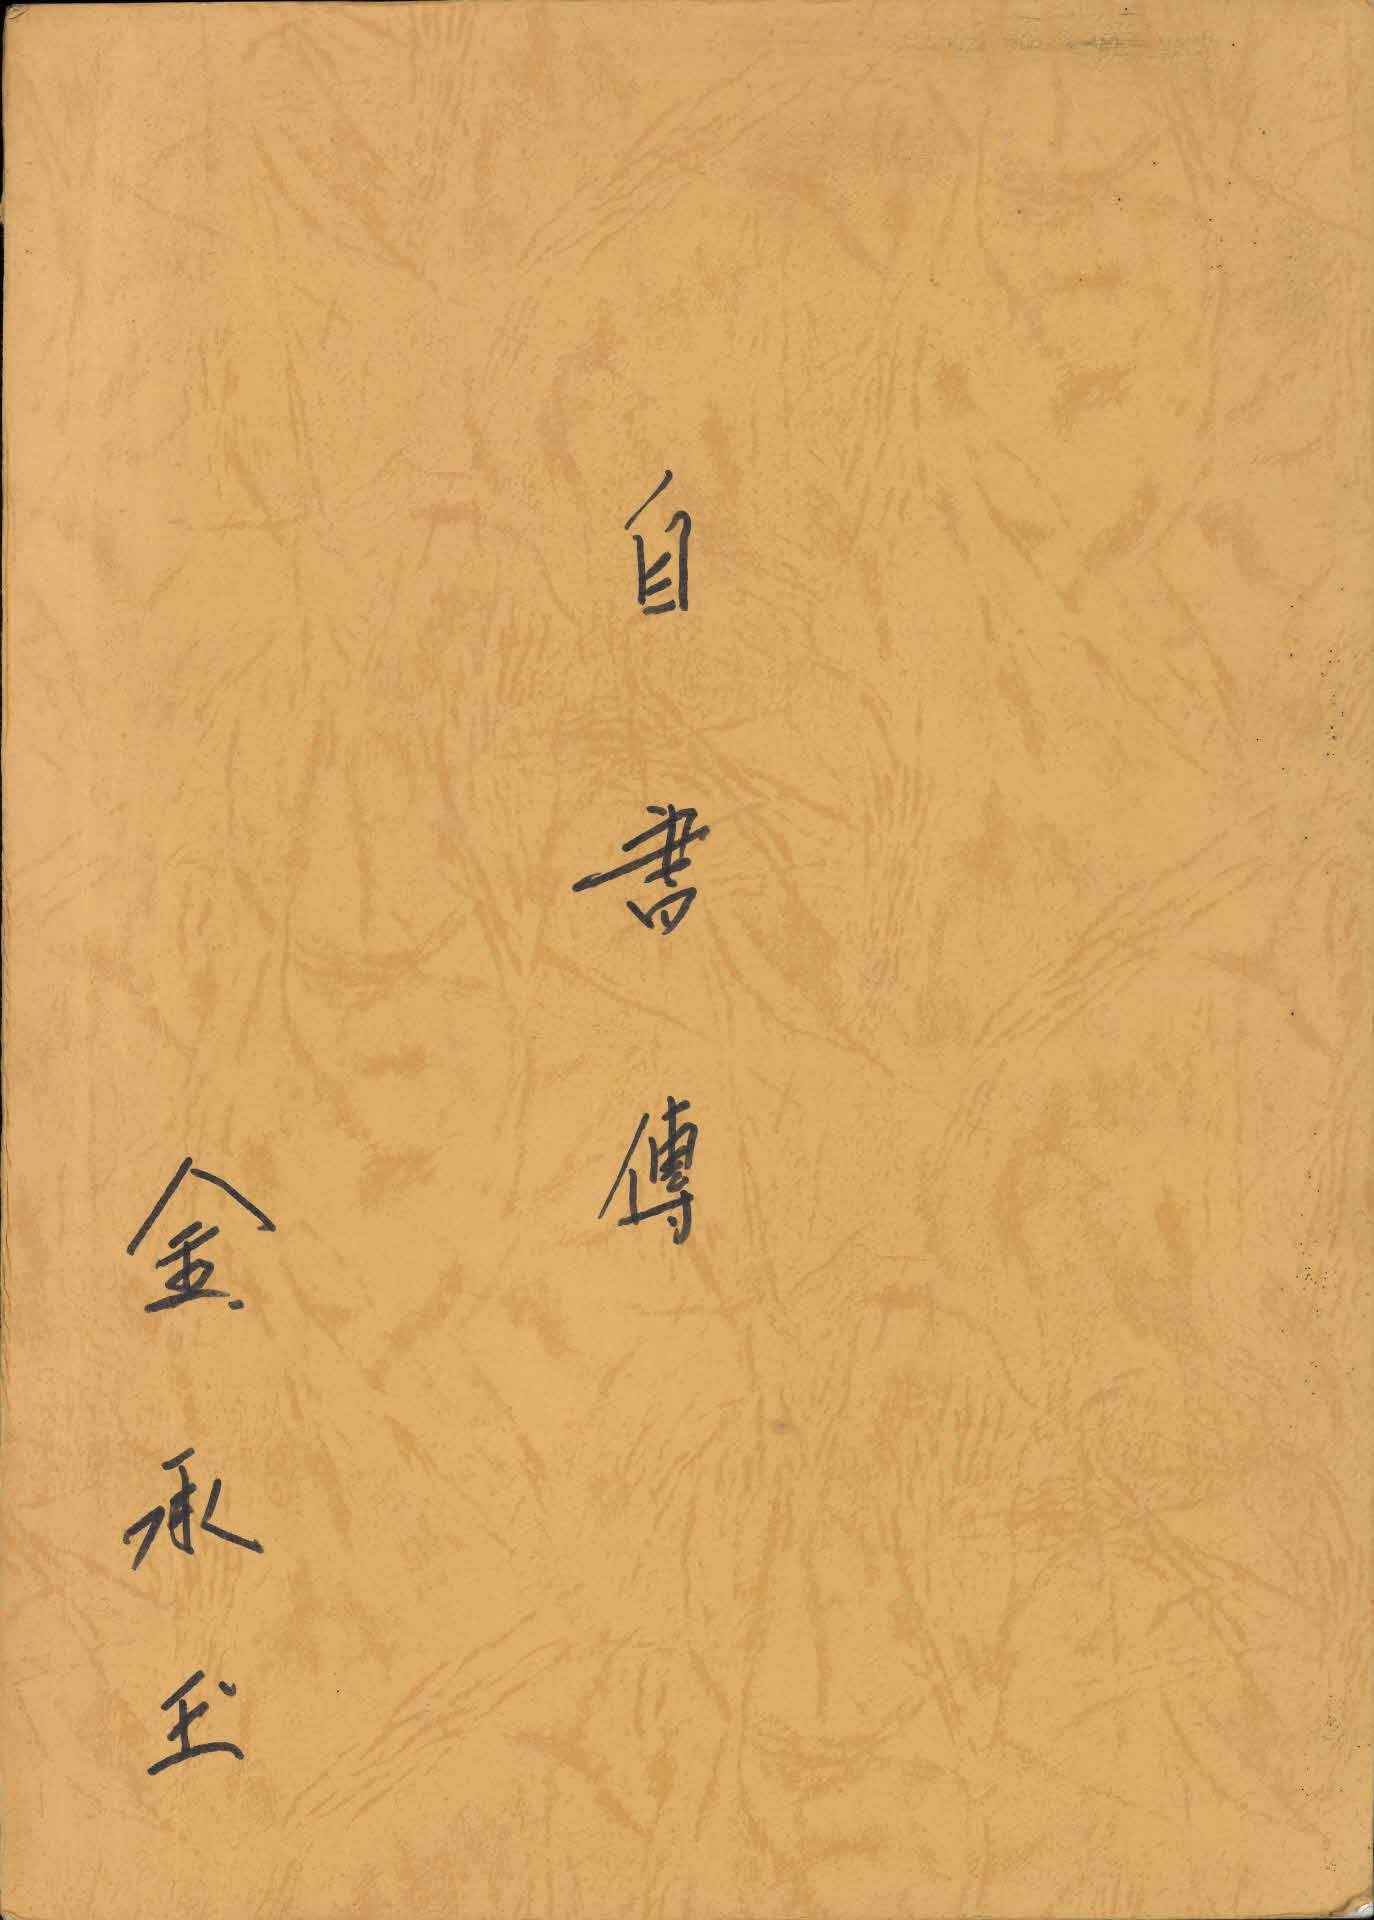 自書傳
金承玉